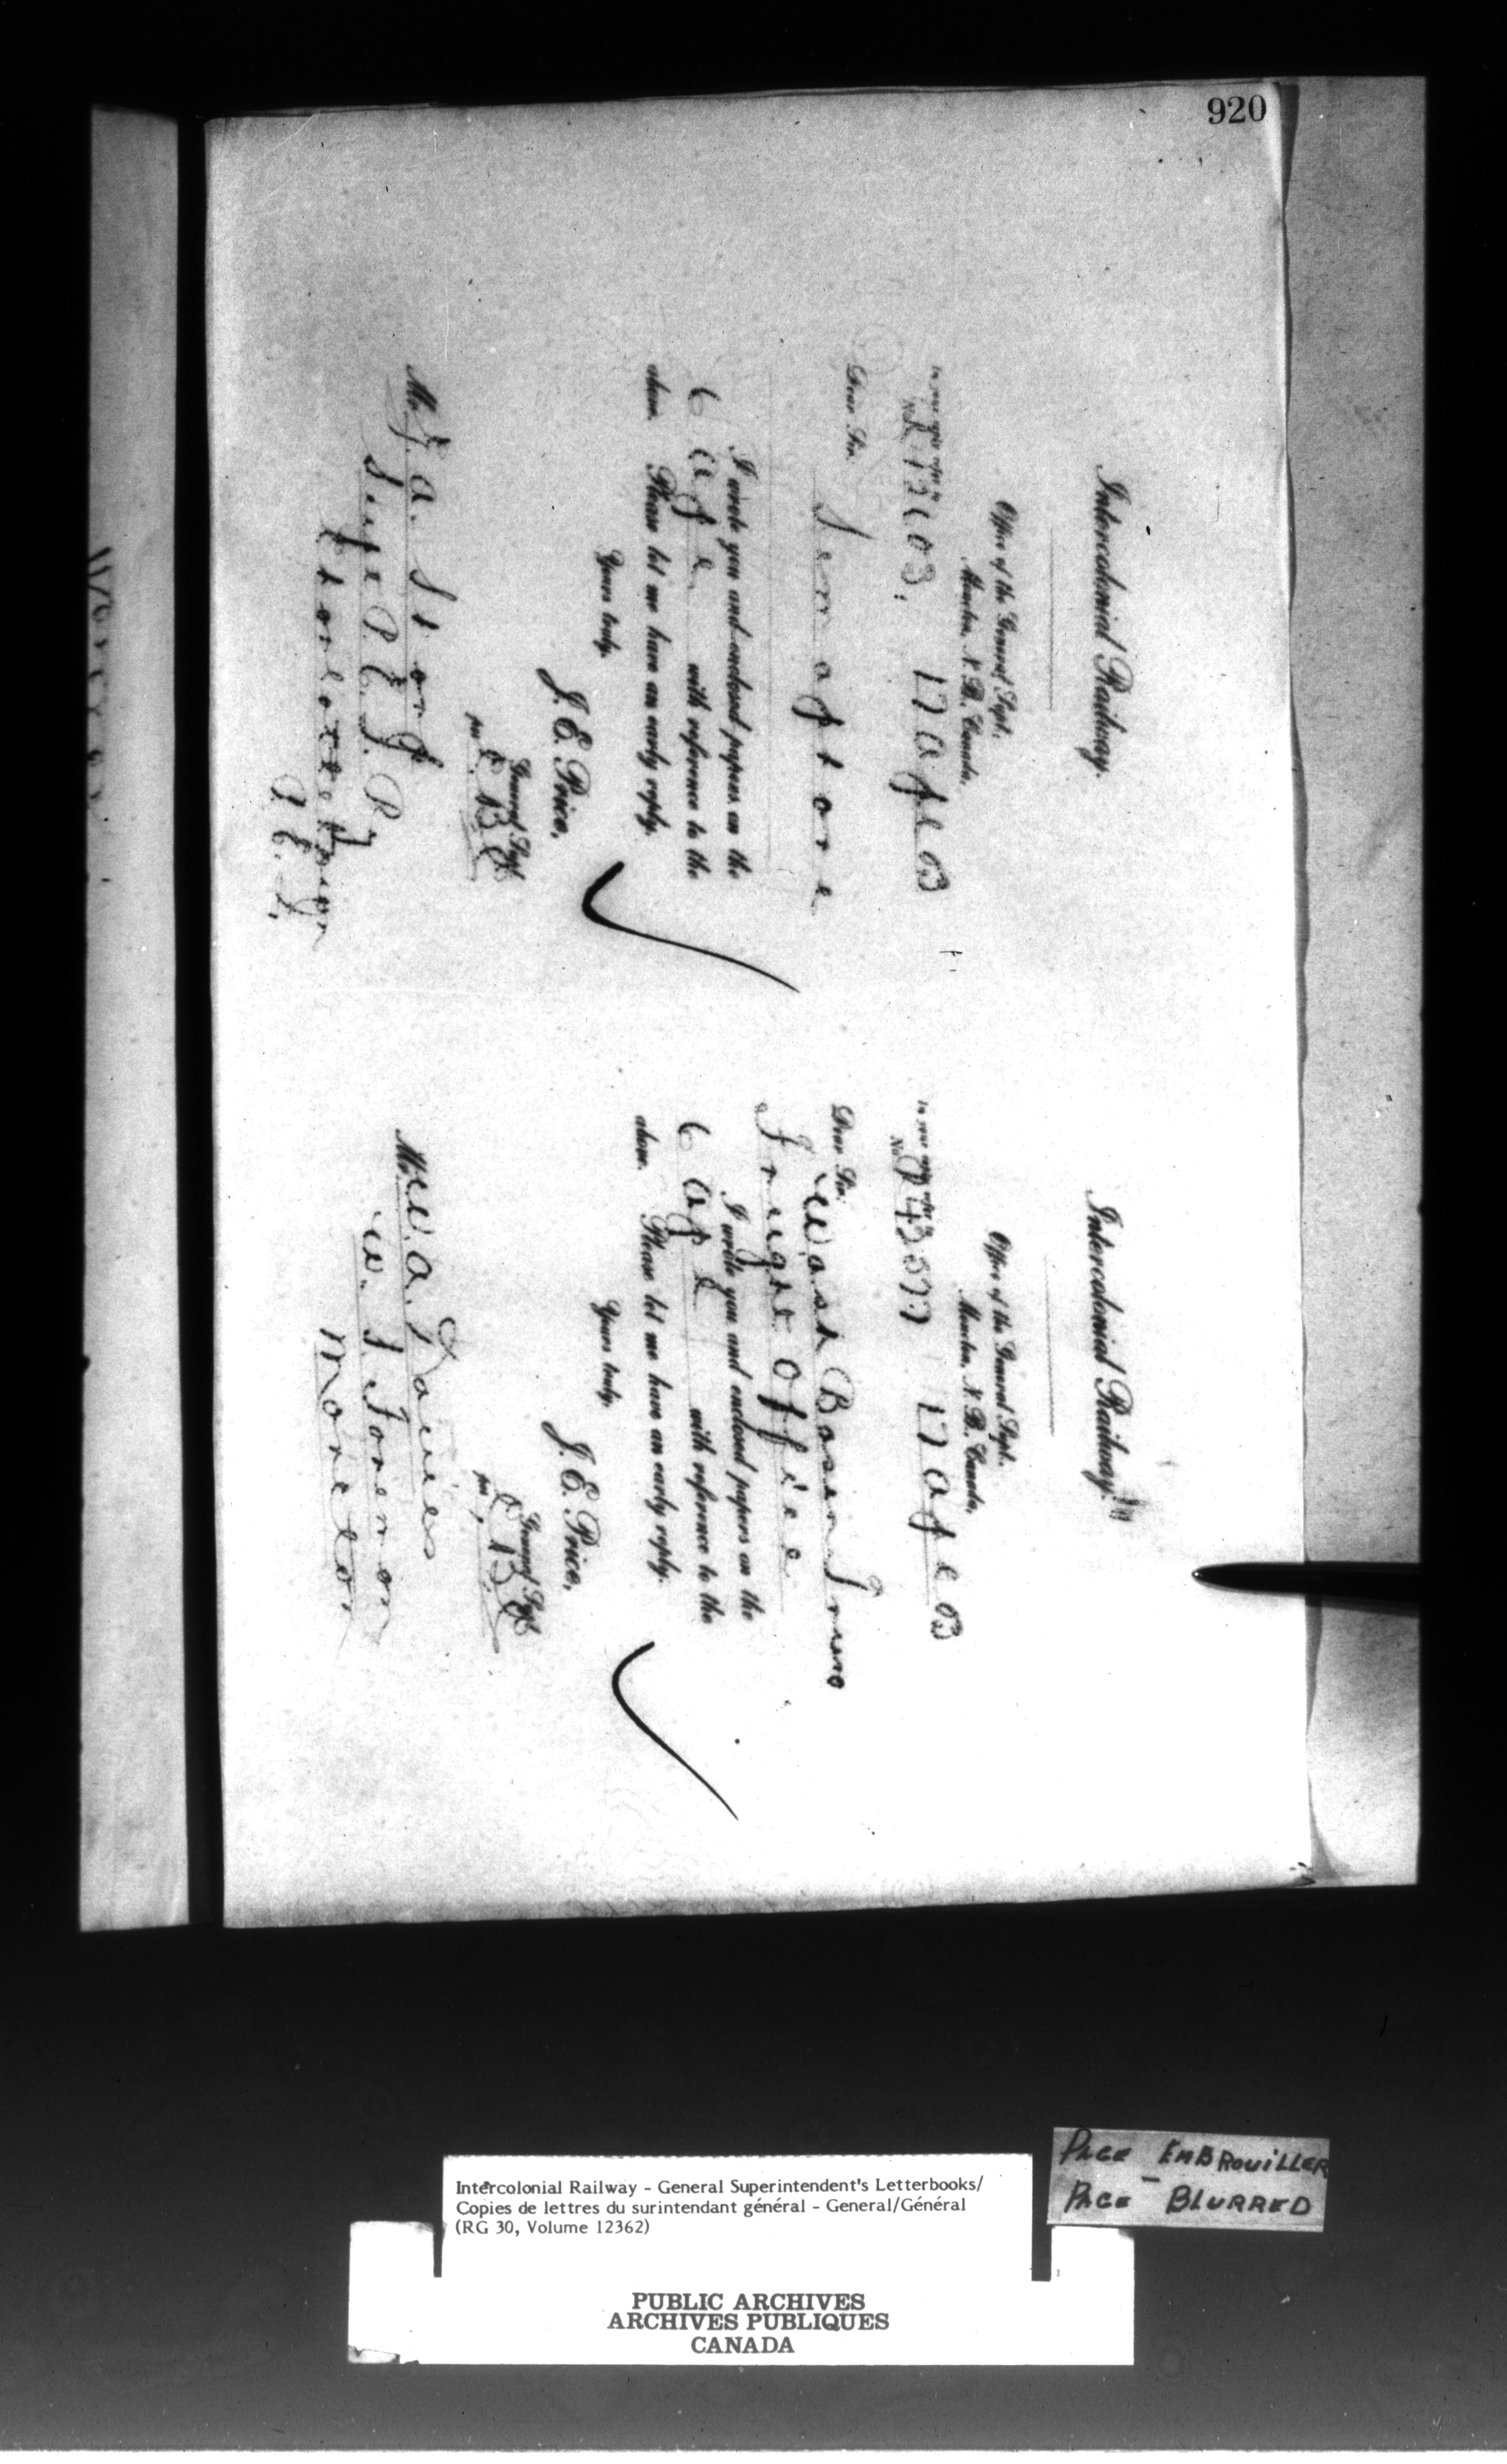 920
Intercolonial Railway.
Office of the General Supt.,
Moncton, N. B. Canada,
In your reply refer to
No. 17 Apl 03
Dear Sir:
Semaphore
I wrote you and enclosed papers on the
6 Apl with reference to the
above. Please let me have an early reply.
Yours truly,
J. E. Price,
General Supt.
per
Mr. G. A. Sharp
Supt P. E. I. R
Charlottetown
P. E. I.
Intercolonial Railway.
Office of the General Supt.
Moncton, N. B. Canada,
In your reply refer to
No. 17 Apl 03
Dear Sir:
Wash Basin
Freight Office
I wrote you and enclosed papers on the
6 Apl with reference to the
above. Please let me have an early reply.
Yours truly,
J. E. Price,
General Supt.
per
Mr. W. A.
W. Foreman
Moncton
Intercolonial Railway - General Superintendent's Letterbooks/
Copies de lettres du surintendant général - General/Général
(RG 30, Volume 12362)
PAGE EMBROUILLER
PAGE - BLURRED
PUBLIC ARCHIVES
ARCHIVES PUBLIQUES
CANADA